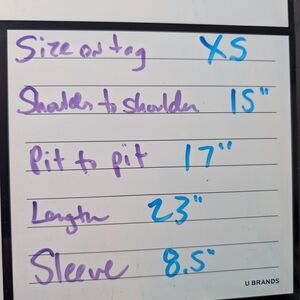 Size on tag XS
Shoulder to shoulder 15"
Pit to pit 17"
Length 23"
Sleeve 8.5"
U BRANDS